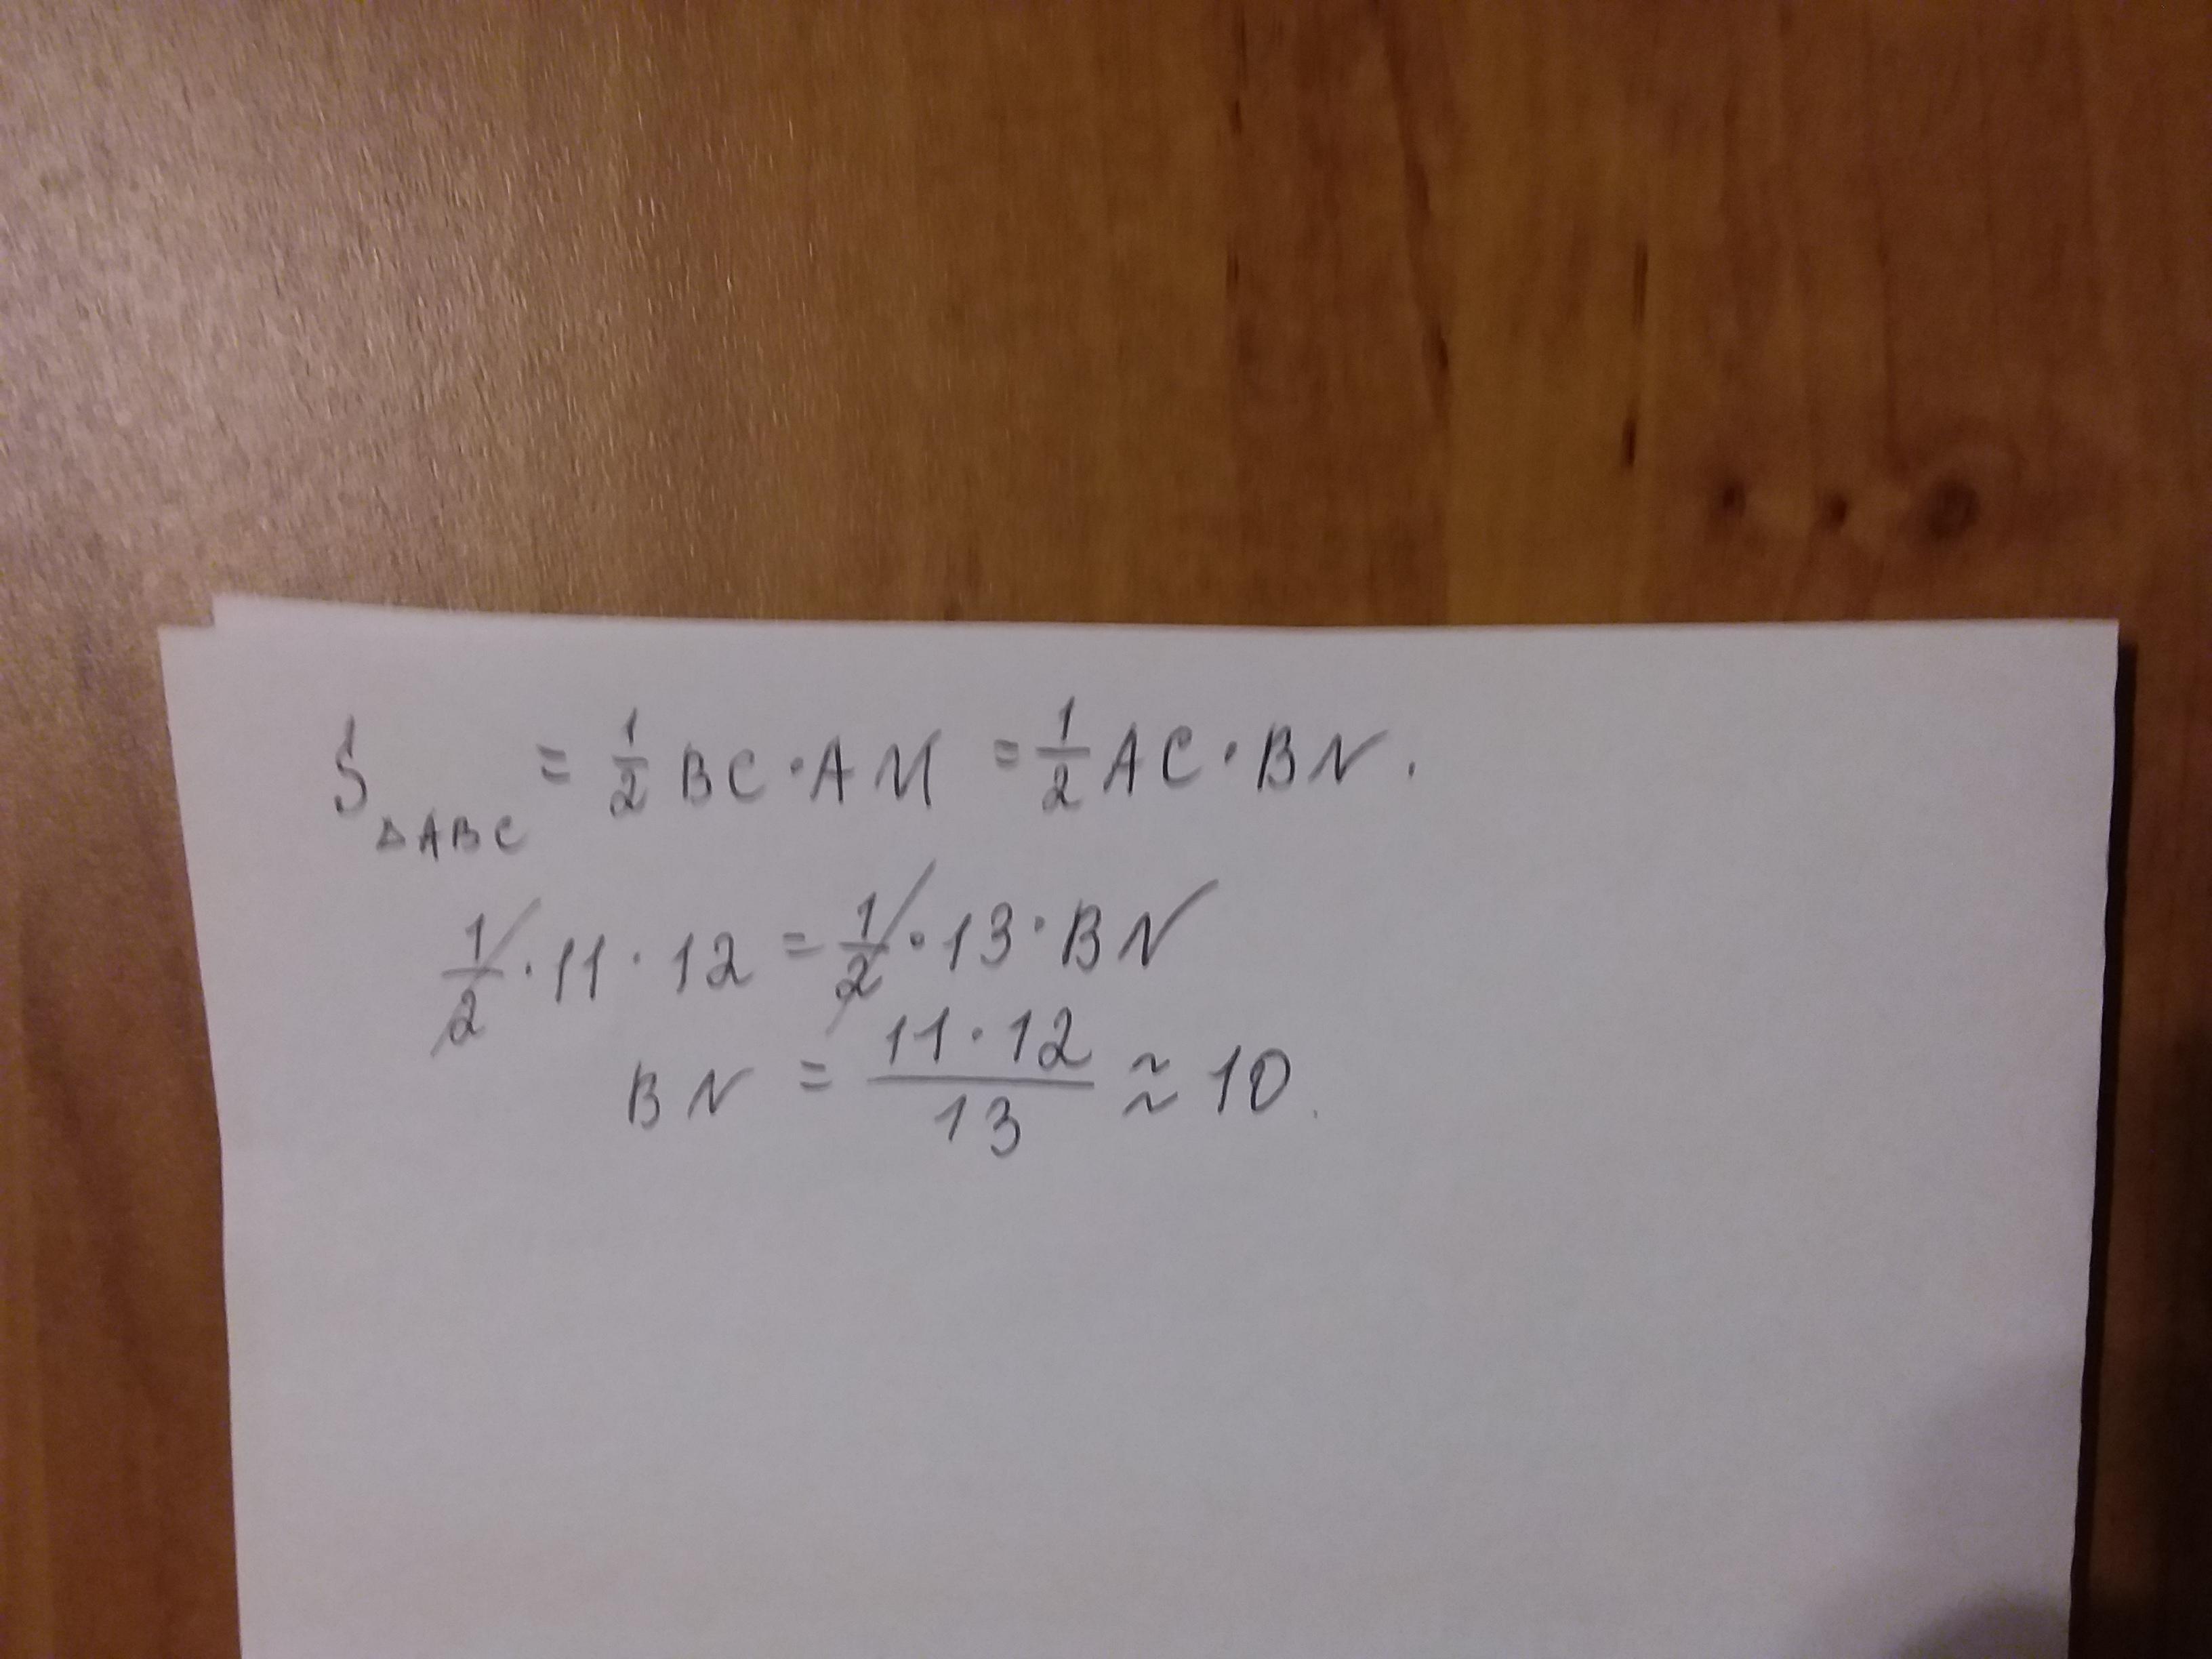 S△ABC = 1/2 BC · AM = 1/2 AC · BN.
1/2 · 11 · 12 = 1/2 · 13 · BN
BN = 11 · 12 / 13 ≈ 10.